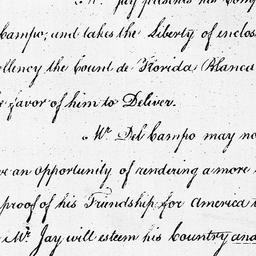 Mr. Jay presents his Comp
Campo, and takes the Liberty of enclos
ellency the Count de Florida Blanca
favor of him to Deliver.
Mr. Del Campo may no
an opportunity of rendering a more
proof of his Friendship for America
Mr. Jay will esteem his Country and